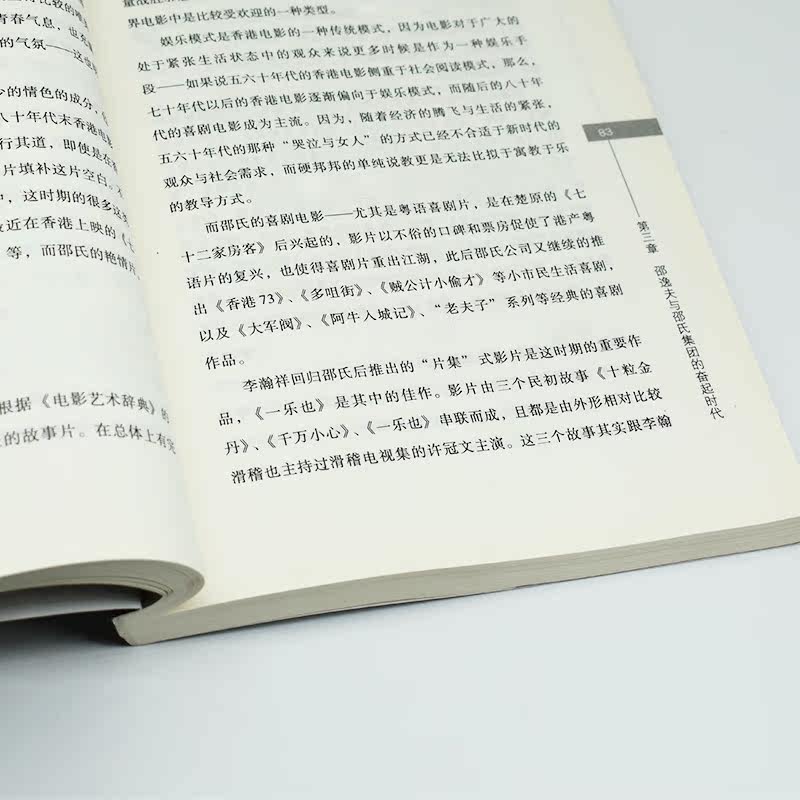 青春气息，也
的气氛——这
少的情色的成分，
八十年代末香港电
行其道，即使是在
片填补这片空白。
中，这时期的很多这
最近在香港上映的《七
等，而邵氏的艳情片
根据《电影艺术辞典》的
的故事片。在总体上有
界电影中是比较受欢迎的一种类型。
娱乐模式是香港电影的一种传统模式，因为电影对于广大的
处于紧张生活状态中的观众来说更多时候是作为一种娱乐手
段——如果说五六十年代的香港电影侧重于社会阅读模式，那么，
七十年代以后的香港电影逐渐偏向于娱乐模式，而随后的八十年
代的喜剧电影成为主流。因为，随着经济的腾飞与生活的紧张，
五六十年代的那种“哭泣与女人”的方式已经不合适于新时代的
观众与社会需求，而硬邦邦的单纯说教更是无法比拟于寓教于乐
的教导方式。
而邵氏的喜剧电影——尤其是粤语喜剧片，是在楚原的《七
十二家房客》后兴起的，影片以不俗的口碑和票房促使了港产粤
语片的复兴，也使得喜剧片重出江湖，此后邵氏公司又继续的推
出《香港73》、《多咀街》、《贼公计小偷才》等小市民生活喜剧，
以及《大军阀》、《阿牛入城记》、“老夫子”系列等经典的喜剧
作品。
李瀚祥回归邵氏后推出的“片集”式影片是这时期的重要作
品，《一乐也》是其中的佳作。影片由三个民初故事《十粒金
丹》、《千万小心》、《一乐也》串联而成，且都是由外形相对比较
滑稽也主持过滑稽电视集的许冠文主演。这三个故事其实跟李翰
83
第三章 邵逸夫与邵氏集团的奋起时代